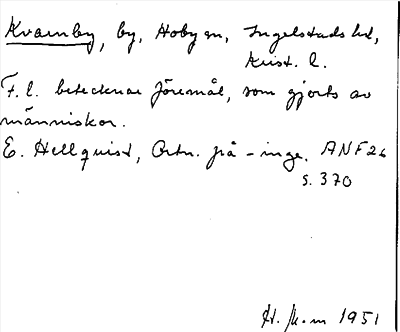 Kvarnby, by, Hoby sn, Ingelstads hd,
Krist. l.
F. l. betecknar föremål, som gjorts av
människor.
E. Hellquist, Ortn. på -inge. ANF 26
s. 370
H. 1951